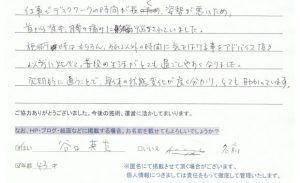 仕事がデスクワークの時間が長く、姿勢が悪いため、
首から背中、腰の痛みに悩まされていました。
施術時はもちろん、それ以外の時間に気をつける事をアドバイス頂き
以前に比べて、普段の生活がとても過ごしやすくなりました。
定期的に通うことで、身体の状態変化が良く分かり、とても助かっています。
ご協力ありがとうございました。今後の施術、運営に活かしてまいります。
なお、HP・ブログ・紙面などに掲載する場合、お名前を載せてもよろしいでしょうか?
はい
いいえ
名前
年齢 43 才
※匿名にて掲載させて頂く場合がございます。
個人情報につきましては責任をもって徹底して管理いたします。